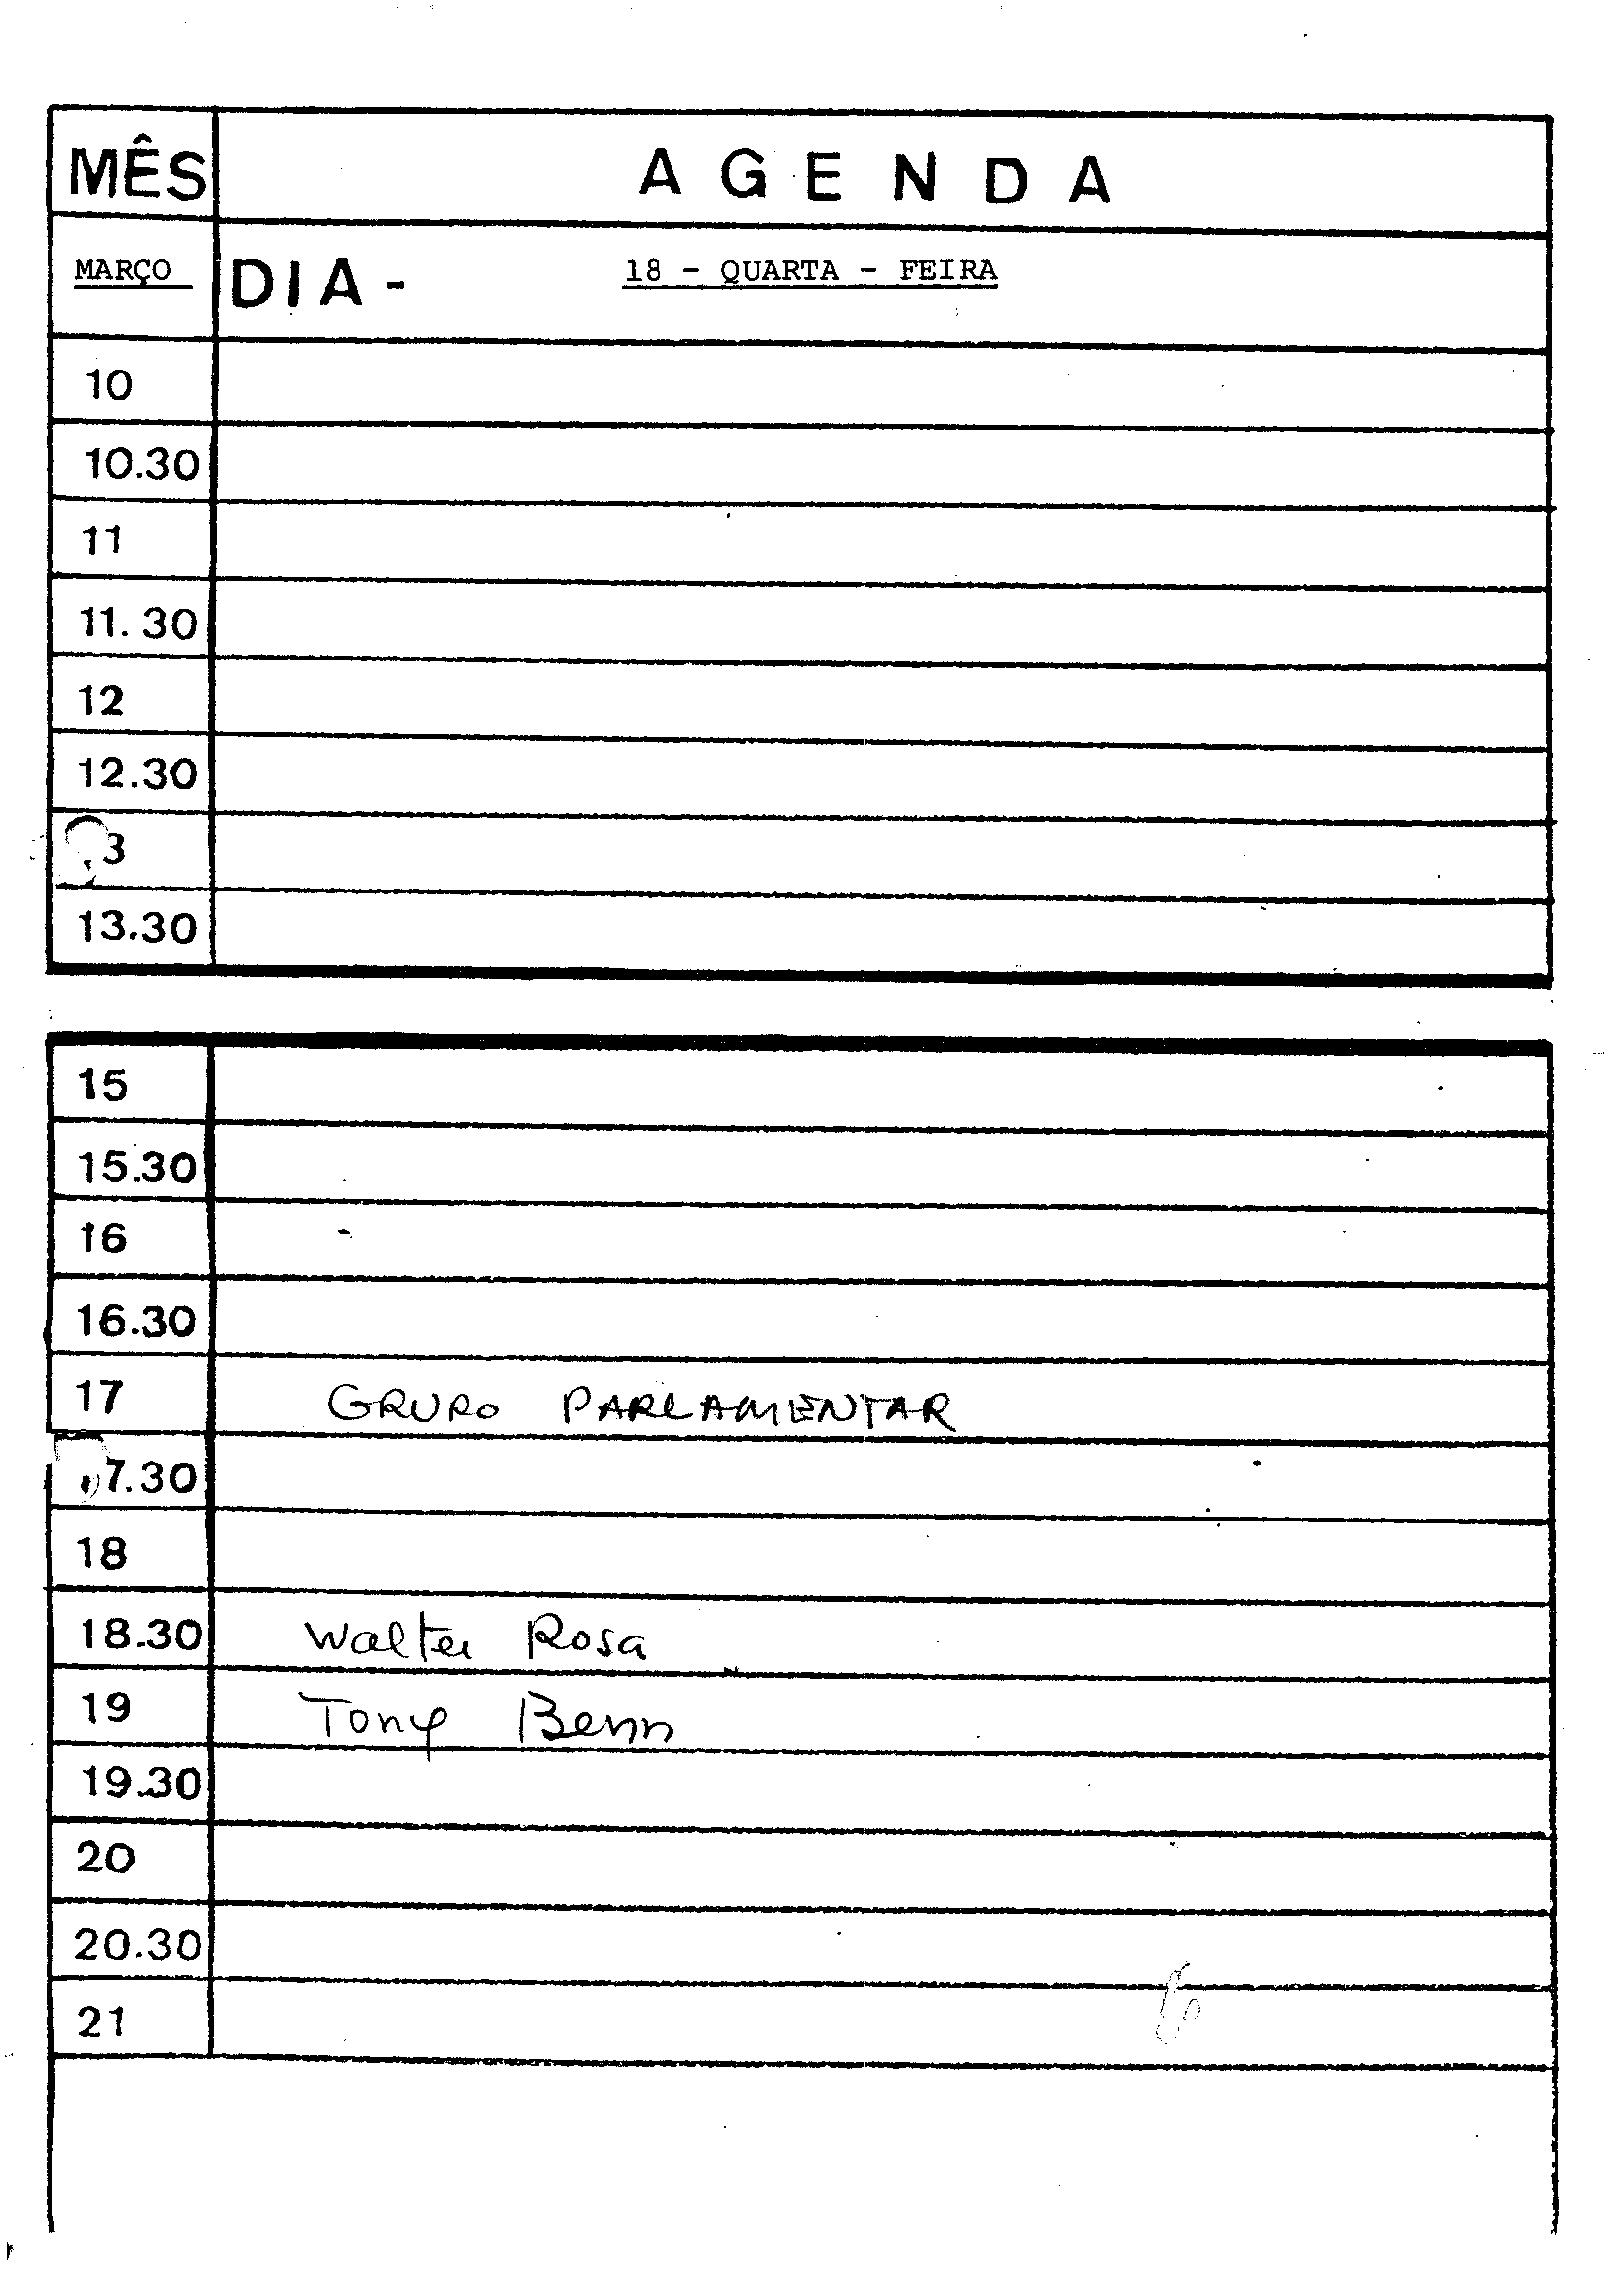 MÊS A G E N D A
MARÇO DIA - 18 - QUARTA - FEIRA
10
10.30
11
11.30
12
12.30
3
13.30
15
15.30
16
16.30
17 GRUPO PARLAMENTAR
7.30
18
18.30 Walter Rosa
19 Tony Benn
19.30
20
20.30
21